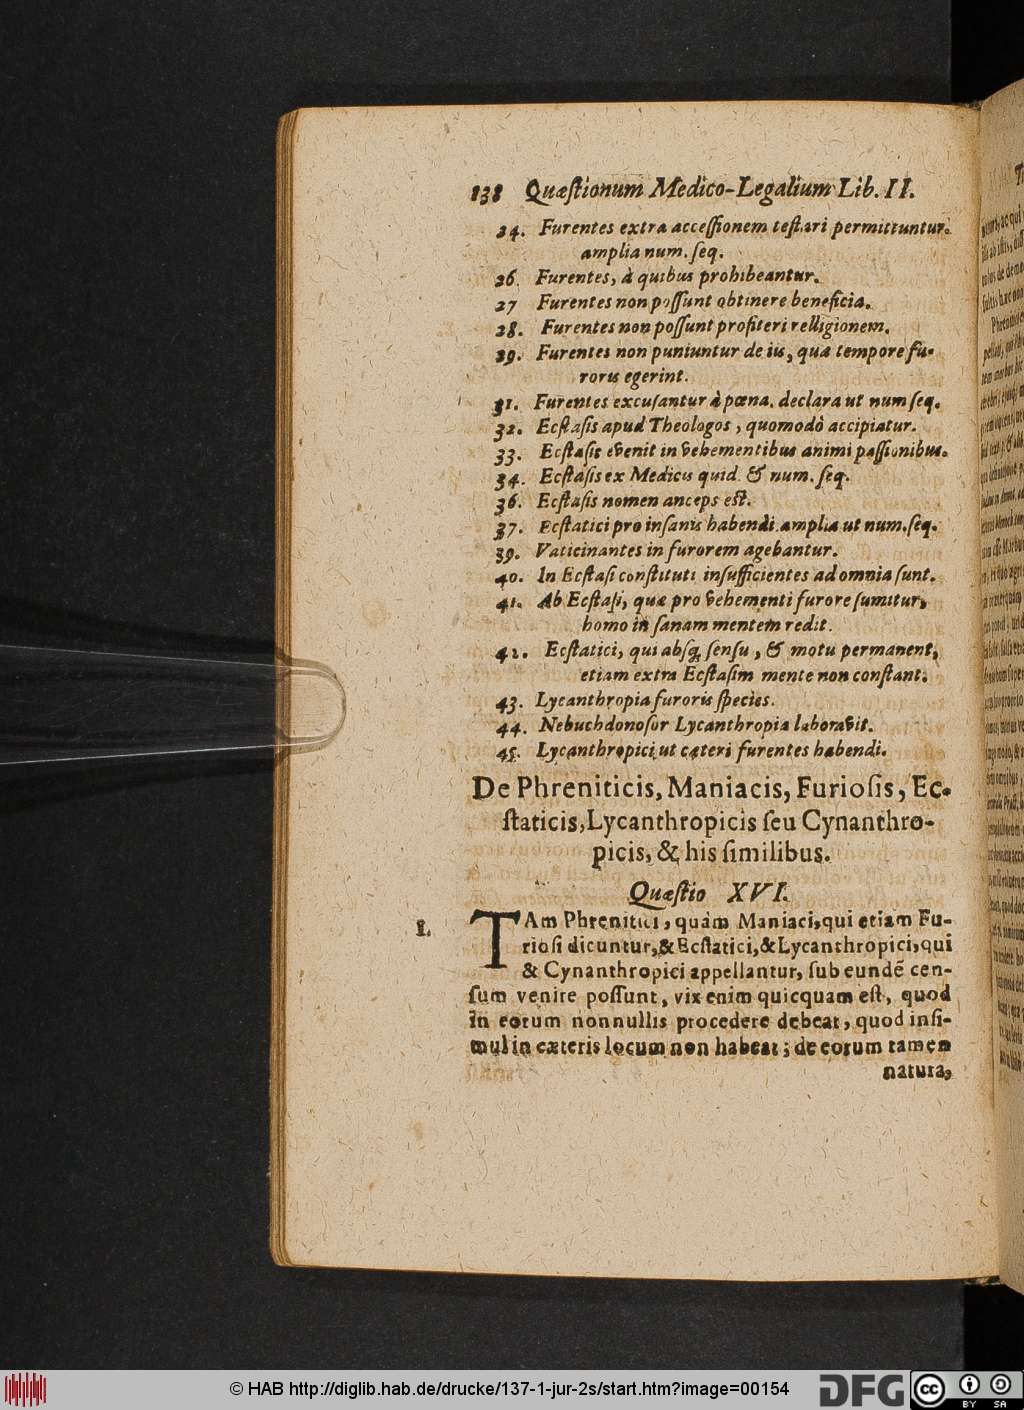 138 Quæstionum Medico-Legalium Lib. II.
24. Furentes extra accessionem testari permittuntur.
amplia num. seq.
26. Furentes, à quibus prohibeantur.
27 Furentes non possunt obtinere beneficia.
28. Furentes non possunt profiteri relligionem.
29. Furentes non puniuntur de iis, quæ tempore fu-
roris egerint.
31. Furentes excusantur à pœna. declara ut num seq.
32. Ecstasis apud Theologos, quomodò accipiatur.
33. Ecstasis evenit in vehementibus animi passionibus.
34. Ecstasis ex Medicis quid. & num. seq.
36. Ecstasis nomen anceps est.
37. Ecstatici pro insanis habendi. amplia ut num. seq.
39. Vaticinantes in furorem agebantur.
40. In Ecstasi constituti insufficientes ad omnia sunt.
41. Ab Ecstasi, quæ pro vehementi furore sumitur,
homo in sanam mentem redit.
42. Ecstatici, qui absq; sensu, & motu permanent,
etiam extra Ecstasim mente non constant.
43. Lycanthropia furoris species.
44. Nebuchdonosor Lycanthropia laboravit.
45. Lycanthropici ut cæteri furentes habendi.
De Phreniticis, Maniacis, Furiosis, Ec-
staticis, Lycanthropicis seu Cynanthro-
picis, & his similibus.
Quæstio XVI.
1. TAm Phrenitici, quàm Maniaci, qui etiam Fu-
riosi dicuntur, & Ecstatici, & Lycanthropici, qui
& Cynanthropici appellantur, sub eundē cen-
sum venire possunt, vix enim quicquam est, quod
in eorum nonnullis procedere debeat, quod insi-
mul in cæteris locum non habeat; de eorum tamen
natura,
© HAB http://diglib.hab.de/drucke/137-1-jur-2s/start.htm?image=00154
DFG
cc
BY SA